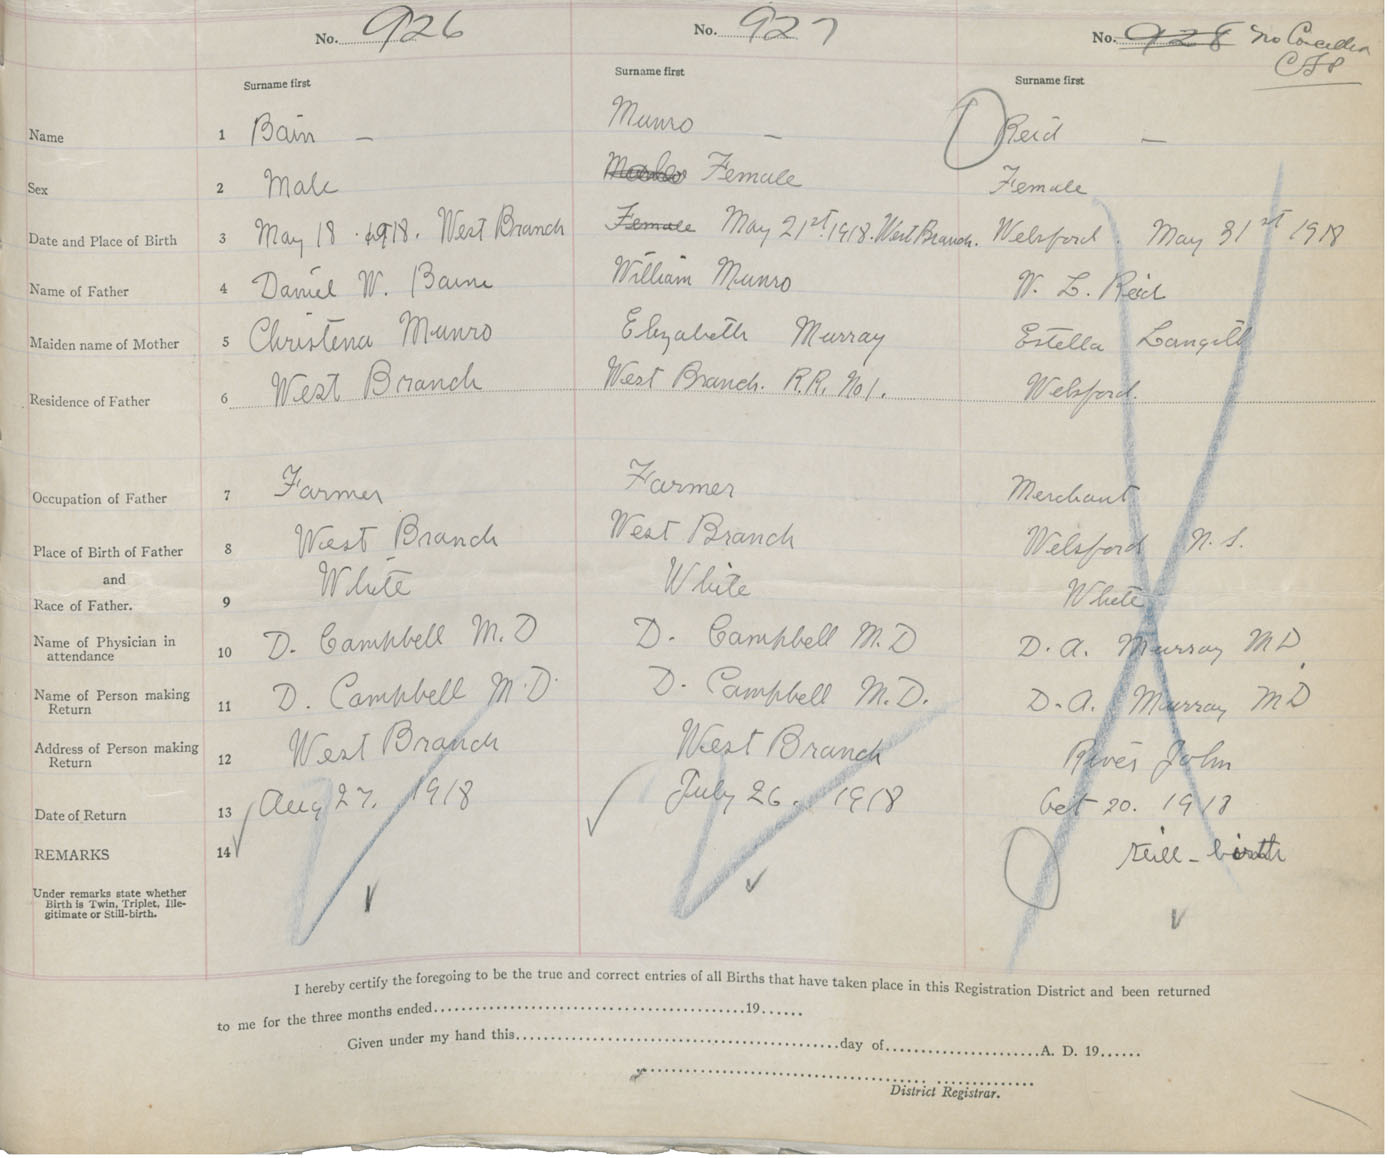 No. 926 No. 927 No. 928 No
CFP
Surname first Surname first Surname first
Name 1 Bain — Munro — Reid —
Sex 2 Male Female Female
Date and Place of Birth 3 May 18. 1918. West Branch Female May 21st. 1918. West Branch. Welsford. May 31st 1918
Name of Father 4 Daniel W. Bain William Munro W. L. Reid
Maiden name of Mother 5 Christena Munro Elizabeth Murray Estella Langill
Residence of Father 6 West Branch West Branch. R.R. No 1. Welsford.
Occupation of Father 7 Farmer Farmer Merchant
Place of Birth of Father 8 West Branch West Branch Welsford N.S.
and
Race of Father. 9 White White White
Name of Physician in
attendance 10 D. Campbell M.D D. Campbell M.D D. A. Murray M D.
Name of Person making
Return 11 D. Campbell M.D. D. Campbell M.D. D. A. Murray M D
Address of Person making
Return 12 West Branch West Branch River John
Date of Return 13 Aug 27. 1918 July 26. 1918 Oct 20. 1918
REMARKS 14 Still-birth
Under remarks state whether
Birth is Twin, Triplet, Ille-
gitimate or Still-birth.
I hereby certify the foregoing to be the true and correct entries of all Births that have taken place in this Registration District and been returned
to me for the three months ended 19
Given under my hand this day of A. D. 19
District Registrar.